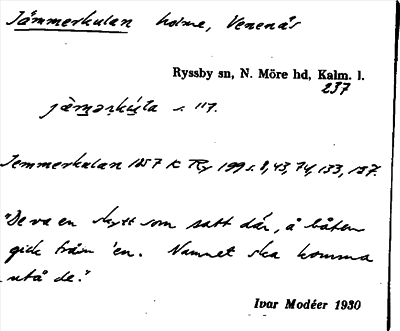 Jämmerkulan holme, Venenäs
Ryssby sn, N. Möre hd, Kalm. l.
237
s. 117.
Jemmerkulan 1857 K Ry 199 s. 8, 43, 74, 133, 157.
"De va en skytt som satt där, å båten
gick från 'en. Namnet ska komma
utå de."
Ivar Modéer 1930